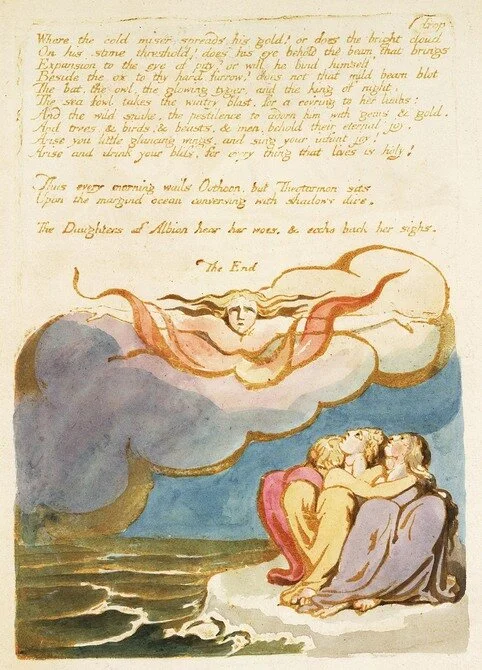 drop
Where the cold miser spreads his gold? or does the bright cloud
On his stone threshold? does his eye behold the beam that brings
Expansion to the eye of pity? or will he bind himself
Beside the ox to thy hard furrow? does not that mild beam blot
The bat, the owl, the glowing tyger, and the king of night.
The sea fowl takes the wintry blast, for a cov'ring to her limbs:
And the wild snake, the pestilence to adorn him with gems & gold.
And trees. & birds. & beasts. & men. behold their eternal joy.
Arise you little glancing wings, and sing your infant joy!
Arise and drink your bliss, for every thing that lives is holy!
Thus every morning wails Oothoon. but Theotormon sits
Upon the margind ocean conversing with shadows dire.
The Daughters of Albion hear her woes, & eccho back her sighs.
The End